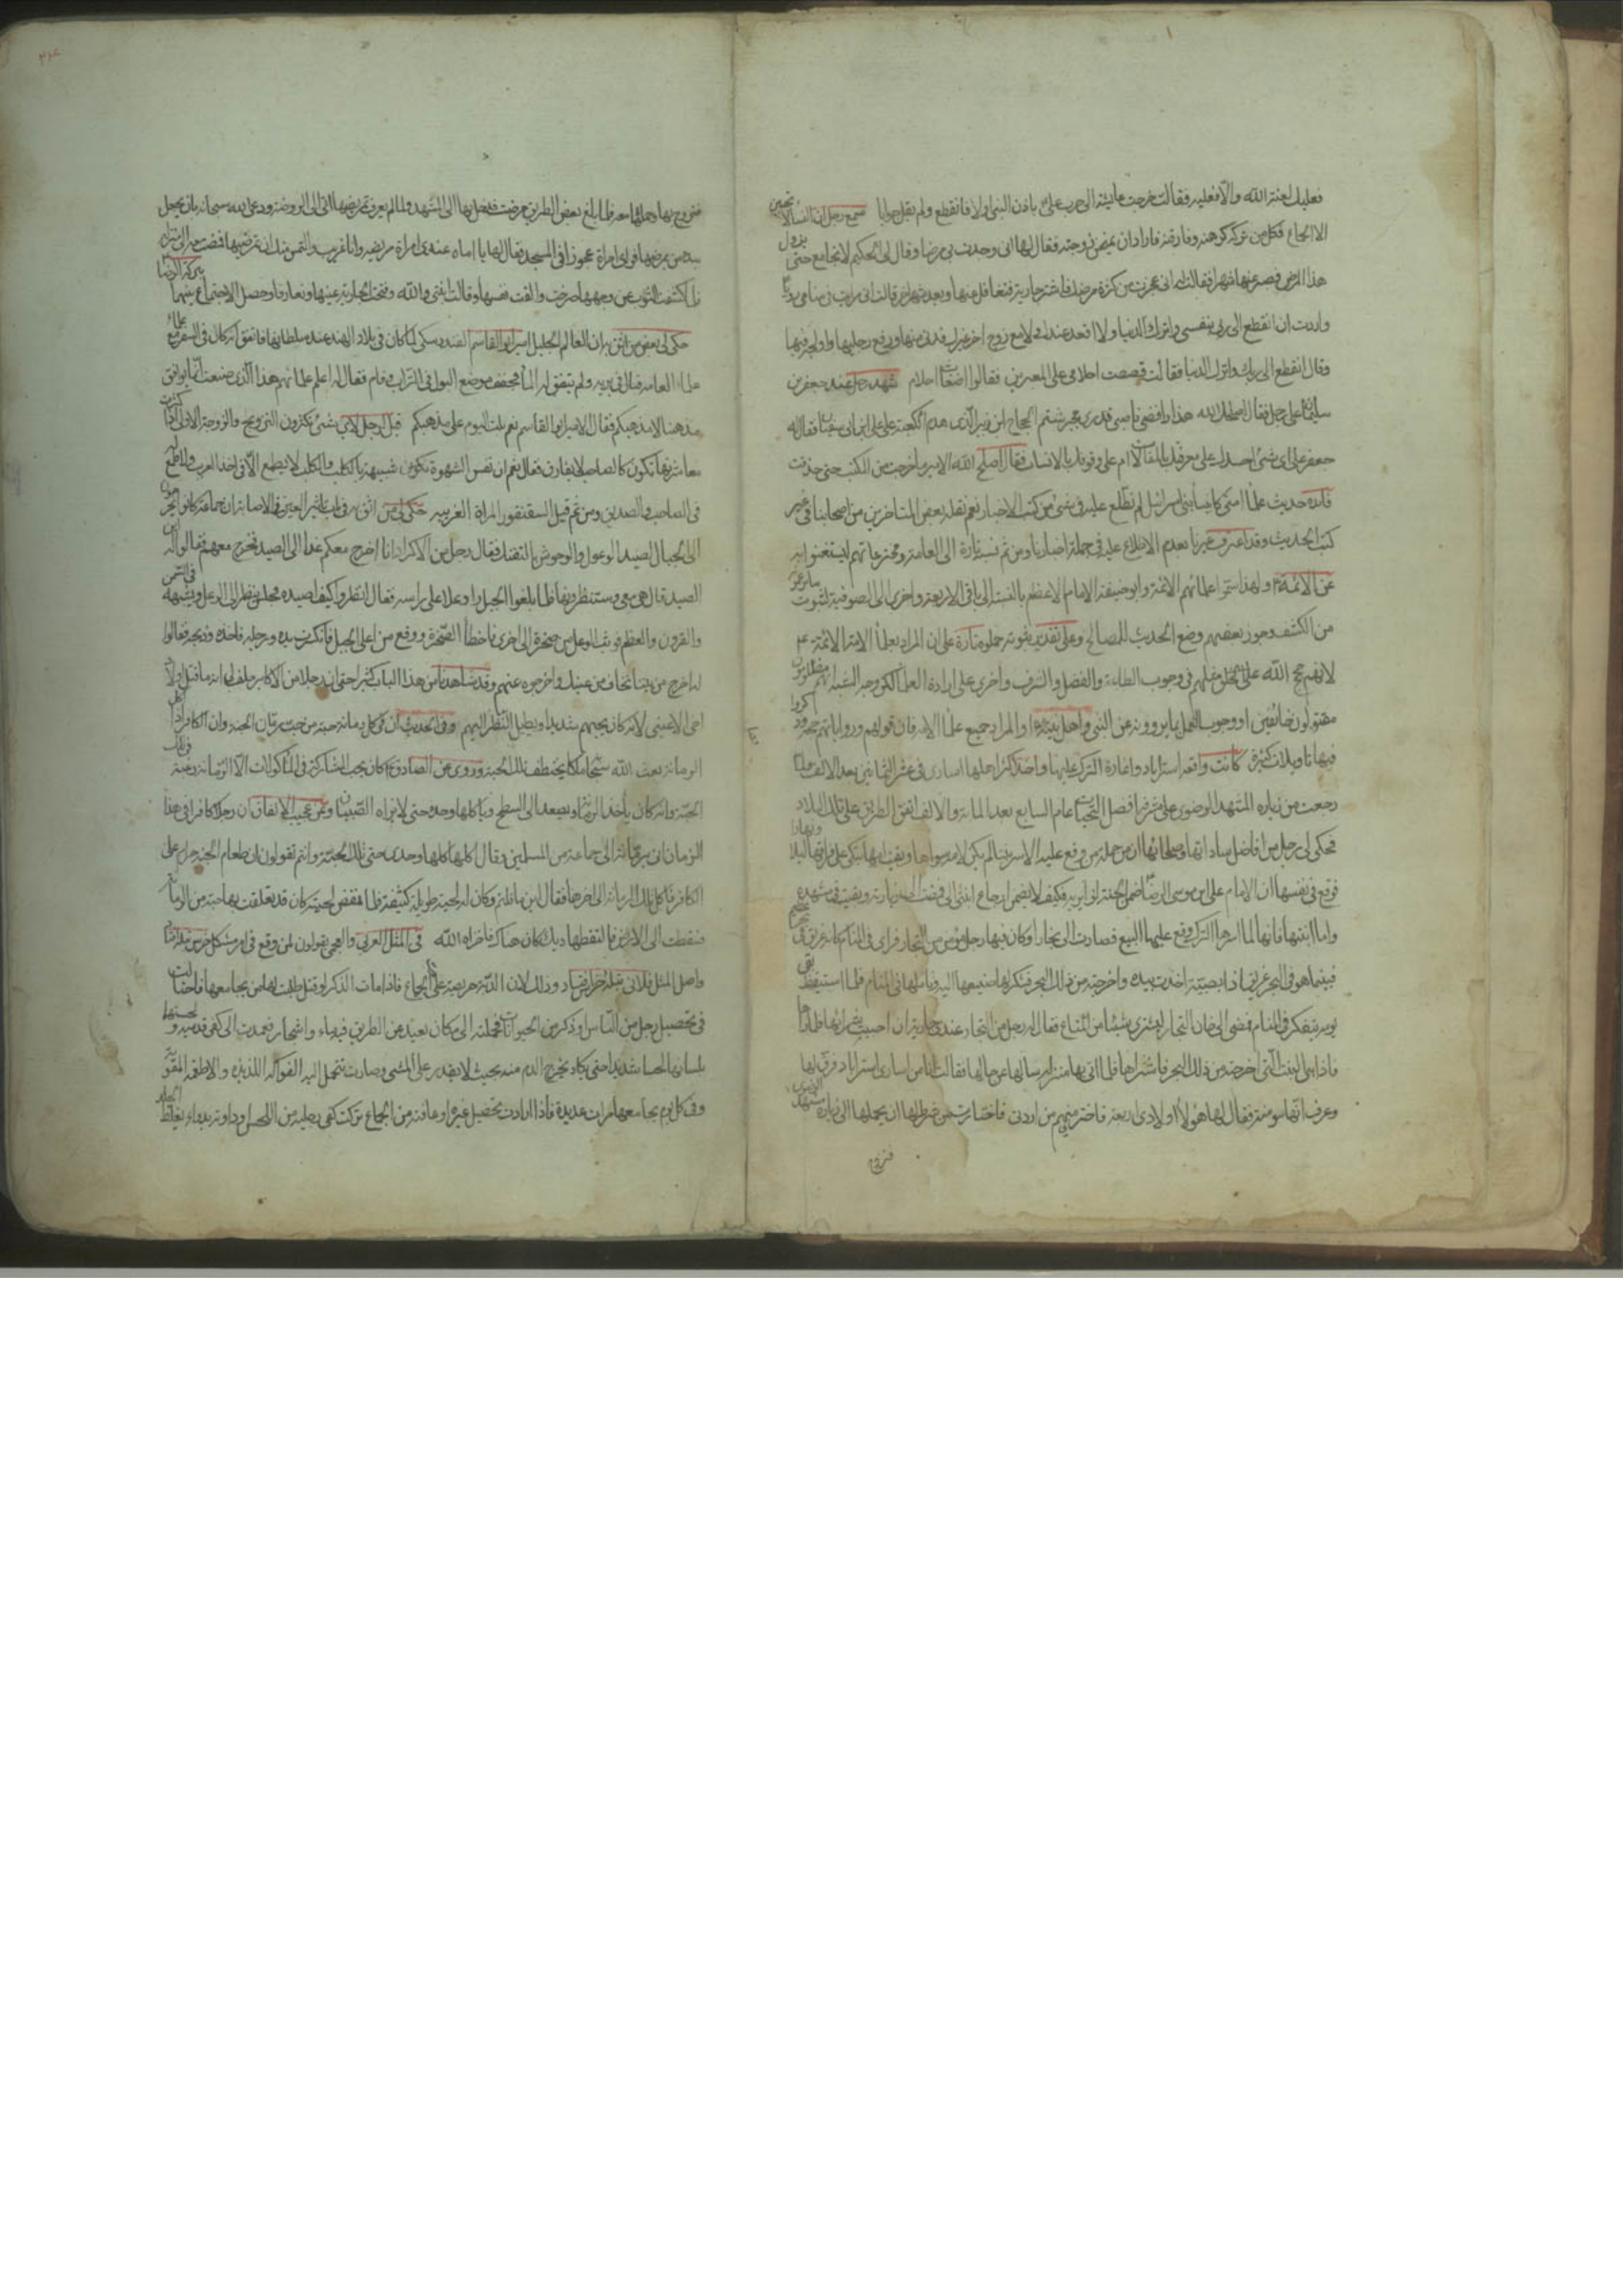 فعليك لعنة الله والا فعليه فقالت خرجت عايشة الى حرب علي باذن النبي اولا فانقطع ولم يقل جوابا سمع رجل ان النساء لا يحببن
الا الجماع فكل من تركه كرهنه وفارقنه فاراد ان يمتحن زوجته فقال لها انى وجدت بي مرضا وقال لى الحكيم لا تجامع حتى يزول
هذا المرض فصبر عنها شهرا فقالت له انى عجزت من كثرة فاشتر جارية وبعد شهر اخر قالت انى رايت في منامى رؤيا
واردت ان انقطع الى ربى بنفسى واترك الدنيا ولا اقعد عندك ولا مع زوج اخر غيرك فدنى منها ورفع رجليها واولجه فيها
وقال انقطع الى ربك واترك الدنيا فقالت قصصت احلامى على المعبرين فقالوا اضغاث احلام شهد رجل عند جعفر بن
سليمان على رجل فقال اصلحك الله هذا رافضى ناصبى قدرى مجبر شتم الحجاج ابن الزبير الذى هدم الكعبة على على ابن ابى سفيان فقال له
جعفر على اى شئ احسدك على معرفتك بالمقالات ام على وقوفك بالانساب فقال اصلح الله الامير ما خرجت من الكتب حتى حذقت
فائدة حديث علماء امتى كانبياء بنى اسرائيل لم نطلع عليه في شئ من كتب الاخبار نعم نقله بعض المتاخرين من اصحابنا في غير
كتب الحديث وقد اعترف غيرنا بعدم الاطلاع عليه في جملة اخبارنا ومن ثم نسبه تارة الى العامة ومخترعاتهم ليستغنوا به
عن الائمة ع ولهذا سموا علمائهم الائمة وابو حنيفة الامام الاعظم بالنسبة الى باقى الاربعة واخرى الى الصوفية
من الكشف وجوز بعضهم وضع الحديث للمصالح وعلى تقدير ثبوته حملوه تارة على ان المراد بعلماء الامة الائمة ع
لانهم حجج الله على الخلق مثلهم في وجوب الطاعة والفضل والشرف واخرى على ارادة العلماء لكن وجه الشبه انهم مظلومون
مقتولون خائفين او وجوب العمل بما يروونه عن النبى واهل بيته ع او المراد جميع علماء الامة فان قولهم ورواياتهم
فيها تاويلات كثيرة كانت واقعة استراباد واغارة الترك عليها واخذ اكثر اهلها اسارى في عشر الثمانين بعد الالف فلما
رجعت من زيارة المشهد الرضوى على مشرفه افضل التحيات عام السابع بعد المائة والالف اتفق الطريق على تلك البلاد
فحكى لى رجل من افاضل ساداتها وصلحائها ان من جملة من وقع عليه الاسر بنتا لم يكن لامه سواها وبقيت امها تبكى على فراقها ليلا ونهارا
فوقع في نفسها ان الامام على ابن موسى الرضا ضمن الجنة لزائريه فكيف لا يضمن ارجاع ابنتى الى فمضت الى زيارته وبقيت في مشهده
واما ابنتها فانها لما اسرها الترك وقع عليها البيع فصارت الى بخارا وكان فيها رجل مؤمن من التجار فراى في المنام كانه غريق في بحر عظيم
فبينما هو في البحر غريق اذا بصبية اخذت بيده واخرجته من ذلك البحر فشكر لها صنيعها اليه في المنام فلما استيقظ بقى
يومه يتفكر في المنام فمضى الى خان التجار ليشترى شيئا من المتاع فقال له رجل من التجار عندى جارية ان احببت شرائها فلما راها
فاذا هى البنت التى اخرجته من ذلك البحر فاشتراها فلما اتى بها منزله سالها عن حالها فقالت انا من اسارى استراباد فرق لها
وعرف انها مومنة فقال لها هؤلاء اولادى اربعة فاختر منهم من اردتى فاختارت من شرط لها ان يحملها الى زيارة مشهد الرضوى
فتزوج
٢١٤
فتزوج بها وحملها معه فلما بلغ بعض الطريق مرضت فدخل بها الى المشهد ولما لم يعرف تمريضها اتى الى الروضة ودعى الله سبحانه بان يجعل
بيده من يمرضها فراى امراة عجوزا في المسجد فقال لها يا اماه عندى امراة مريضة وانا غريب والتمس منك ان تمرضيها فمضت معه الى منزله
فلما كشفت الثوب عن وجهها صرخت والقت نفسها وقالت ابنتى والله وفتحت الجارية عينها وتعارفا وحصل الاجتماع بينهما ببركة الرضا
حكى لى بعض من اثق به ان العالم الجليل امير ابو القاسم الفندرسكى لما كان في بلاد الهند عند سلطانها فاتفق انه كان في السفر مع
علماء العامة فبال في برية ولم يتفق له الماء فجفف موضع البول في التراب وقام فقال له اعلم علمائهم هذا الذى صنعت انما يوافق
مذهبنا لا مذهبكم فقال الامير ابو القاسم نعم بلت اليوم على مذهبكم قيل لرجل لاى شئ تكثرون التزويج والزوجة الاولى اذا كثرت
معاشرتها تكون كالصاحب لا يفارق فقال نعم ان نفس الشهوة تكون شبيهة بالكلب والكلب لا يطمع الا في اخذ الغريب ولا طمع له
في الصاحب والصديق ومن ثم قيل السقنقور المراة الغريبة حكى لى من اثق به في باب تاثير العين والاصابة ان جماعة كانوا
الى الجبال لصيد الوعول والوحوش بالتفنك فقال رجل من الاكراد انا اخرج معكم غدا الى الصيد فخرج معهم فقالوا له اين
الصيد قال هى معى وستنظرونها فلما بلغوا الجبل راو وعلا على راسه فقال انظروا كيف اصيده فجلس ينظر الى الوعل ويشبهه في السمن
والقرون والعظم فوثب الوعل من صخرة الى اخرى فاخطأ الصخرة ووقع من اعلى الجبل فانكسرت يده ورجله فاخذه وذبحه فقالوا
له اخرج من بيننا نخاف من عينك واخرجوه عنهم وقد شاهدنا من هذا الباب كثيرا حتى ان رجلا من الاكابر حلف لى انه ما قتل ولاد
اخى الا عينى لانه كان يحبهم شديدا ويطيل النظر اليهم وفى الحديث ان في كل رمانة حبة من حب رمان الجنة وان الكافر اذا اكل
الرمانة بعث الله سبحانه ملكا يختطف تلك الحبة وروى عن الصادق ع كان يحب المشاركة في الماكولات الا الرمانة
الجنة وانه كان ياخذ الرمانة ويصعد الى السطح وياكلها وحده حتى لا يراه الصبيان ومن عجيب الاتفاق ان رجلا كافرا في هذا
الزمان اتى برمانة الى جماعة من المسلمين وقال كلها اكلها وحدى حتى تلك الحبة وانتم تقولون ان طعام الجنة حرام على
الكافر فاكل تلك الرمانة الى اخرها فقال اين ما قلتم وكان له لحية طويلة كثيفة فلما نفض لحيته كان قد تعلقت بها حبة من الرمانة
فسقطت الى الارض فالتقطها ديك كان هناك فاخزاه الله في المثل العربى والعجمى يقولون لمن وقع في امر مشكل
واصل المثل فلانى وذلك لان الدبة حريصة على الجماع فاذا مات الذكر او قتل طلبت لها من يجامعها فاحتالت
في تحصيل رجل من الناس او ذكر من الحيوانات فحملته الى مكان بعيد عن الطريق فيه ماء واشجار فعمدت الى كفى قدميه ولحستهما
بلسانها لحسا شديدا حتى يكاد يخرج الدم منه بحيث لا يقدر على المشى وصارت تحمل اليه الفواكه اللذيذة والاطعمة المقوية
وفى كل يوم يجامعها مرات عديدة فاذا ارادت تحصيل غيره او عافته من الجماع تركت كفى رجليه من اللحس وداوته بدواء يغلظ الجلد